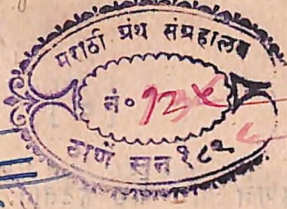 मराठी ग्रंथ संग्रहालय
नं०
ठाणें सन १८९